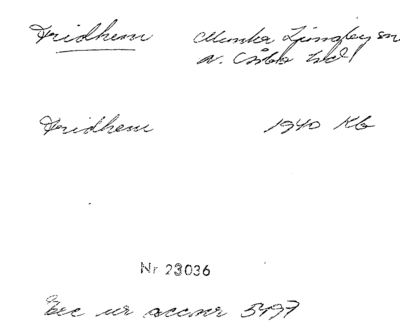 Fridhem Munka Ljungby sn
N. Åsbo hd
Fridhem 1940 Kb
Nr 23036
Exc ur accnr 5497